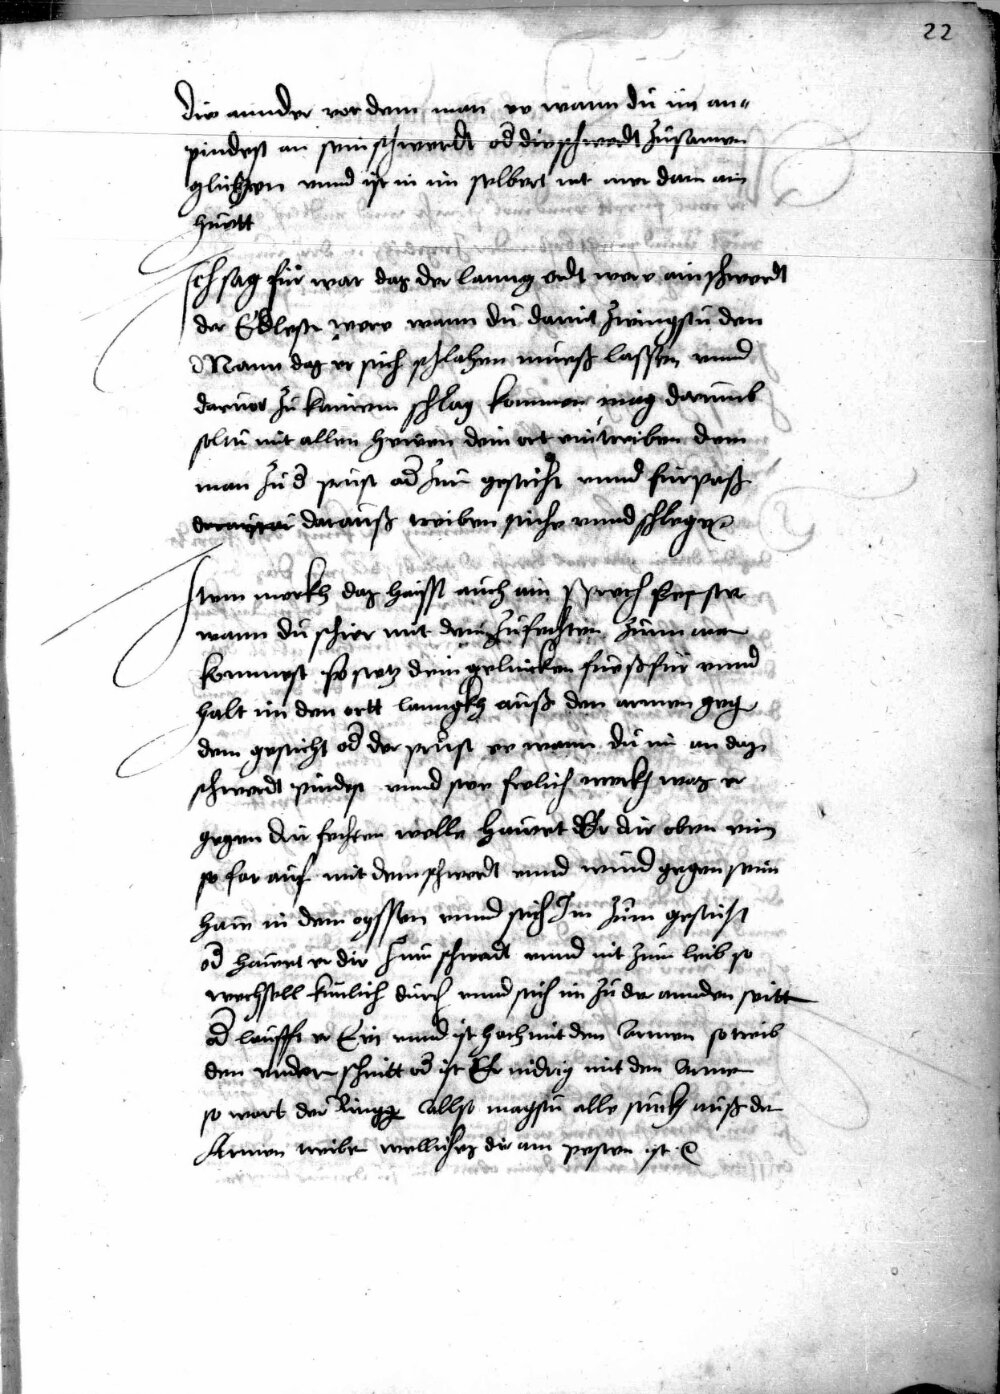 22
die annder vor dem man ee wann du im an-
pindest an sein schwerdt od die schwerdt zusamen
glitzen vnnd ist in im selbert nit mer dann ain
huett
Ich sag für war das der lanng ordt were ain schwerdt
der Edlest were wann du damit zwingstu den
Mann das er sich schlahen muess lassen vnnd
daruor zu kainem schlag kommen mag darumb
soltu mit allen hewen dein ort eintreiben dem
man zu d prust od zum gesicht vnnd fürpass
darauss treiben stiche vnnd schlege
Item merkh das haisst auch ain sprechfenster
wann du schier mit dem zufechten zum man
kommest so setz dein gelincken fuess für vnnd
halt im den ortt lanngkh auss den armen geg
dem gesicht od der prust ee wann du im an das
schwerdt pindest vnnd stee frolich merkh was er
gegen dir fechten welle hauet Er dir oben ein
so far auf mit dem schwerdt vnnd wind gegen seim
haw in den ogssen vnnd stich Im zum gesicht
od hauet er dir zum schwerdt vnnd nit zum leib so
wechsell künlich durch vnnd stich im zu der annden seitt
od laufft er Ein vnnd ist hoch mit den Armen so treib
den vnder schnitt od ist Er nidrig mit den Armen
so wart der Ringg Allso magstu alle stückh auss den
Armen treiben wellichs dir am pesten ist